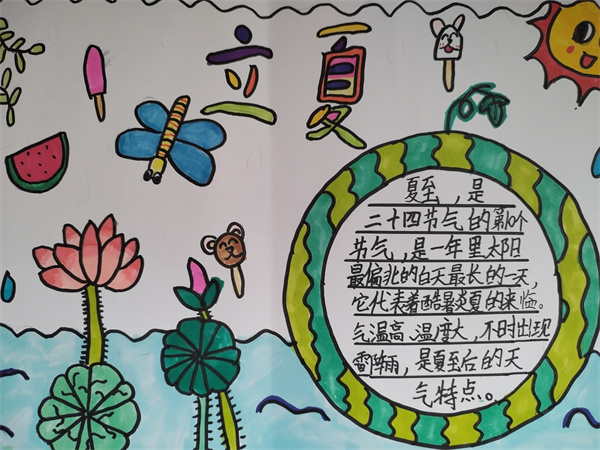 立夏
夏至，是
二十四节气的第10个
节气，是一年里太阳
最偏北的白天最长的一天，
它代表着酷暑炎夏的来临。
气温高、温度大，不时出现
雷阵雨，是夏至后的天
气特点。